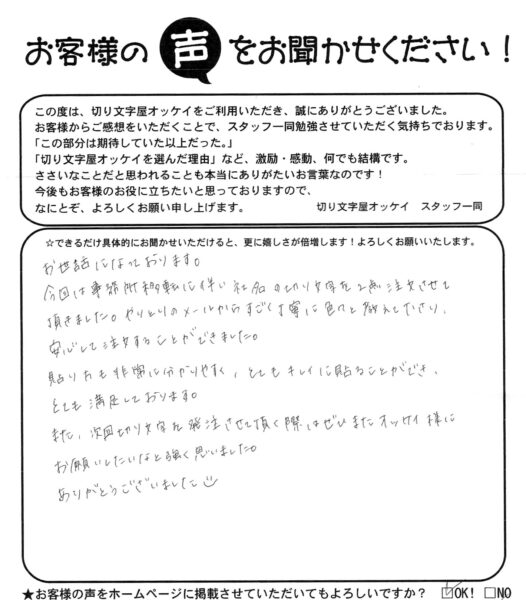 お客様の声をお聞かせください！
この度は、切り文字屋オッケイをご利用いただき、誠にありがとうございました。
お客様からご感想をいただくことで、スタッフ一同勉強させていただく気持ちでおります。
「この部分は期待していた以上だった。」
「切り文字屋オッケイを選んだ理由」など、激励・感動、何でも結構です。
ささいなことだと思われることも本当にありがたいお言葉なのです！
今後もお客様のお役に立ちたいと思っておりますので、
なにとぞ、よろしくお願い申し上げます。　切り文字屋オッケイ　スタッフ一同
☆できるだけ具体的にお聞かせいただけると、更に嬉しさが倍増します！よろしくお願いいたします。
お世話になっております。
今回は事務所移転に伴い社名の切り文字を2点注文させて
頂きました。やりとりのメールからすごく丁寧に色々と教えて下さり、
安心して注文することができました。
貼り方も非常に分かりやすく、とてもキレイに貼ることができ、
とても満足しております。
また、次回切り文字を発注させて頂く際はぜひまたオッケイ様に
お願いしたいなと強く思いました。
ありがとうございました
★お客様の声をホームページに掲載させていただいてもよろしいですか？　☑OK!　□NO